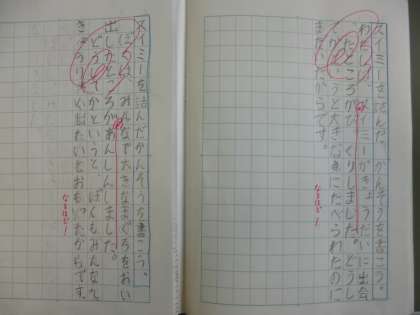 スイミーを読んだ、かんそうを書こう。
わたしは、スイミーがきょうだいに出会
ったところがびっくりしました。どうし
てかというと大きな魚にたべられたのに
またいたからです。
なるほど!
スイミーを読んだかんそうを書こう。
ぼくは、みんなで大きなまぐろをおい
出したところがあんしんしました。
どうしてかというと、ぼくもみんなで
きょうりょくし出たいとおもったからです。
なるほど!